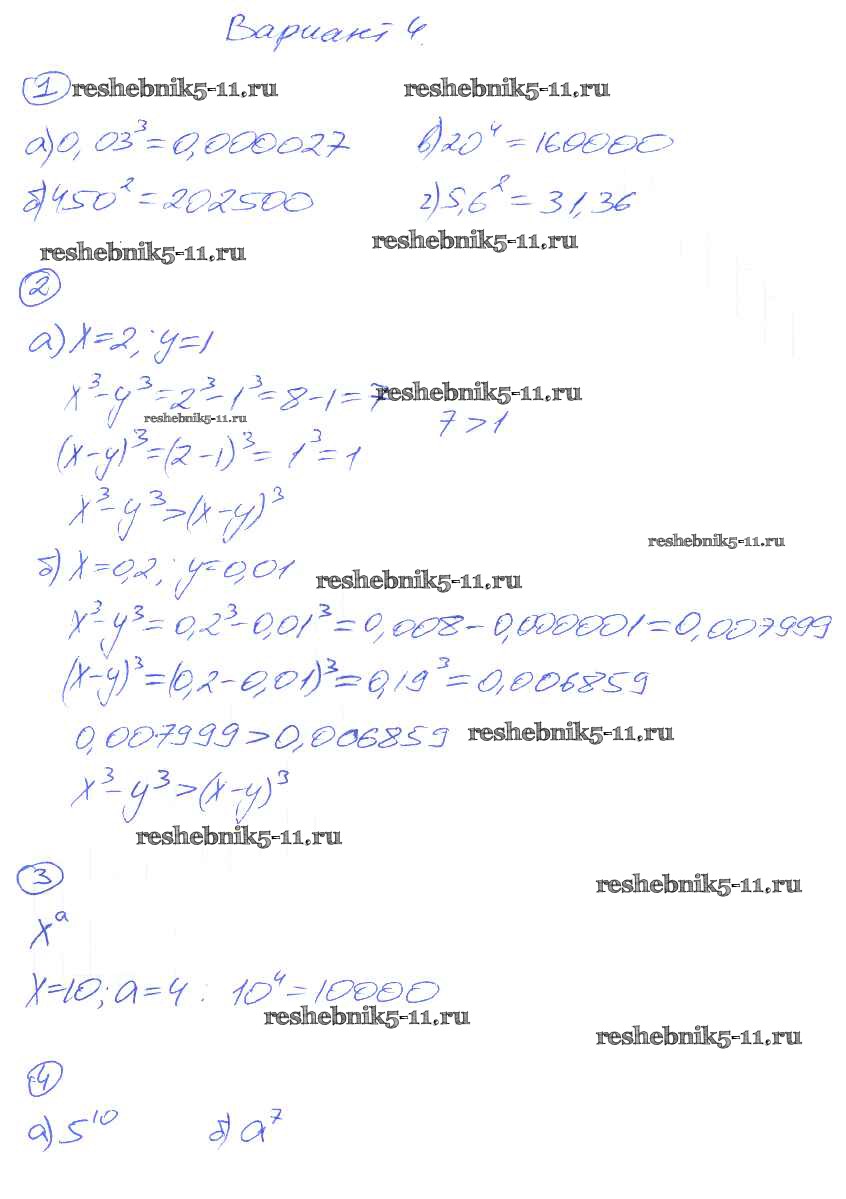 Вариант 4.
1 reshebnik5-11.ru reshebnik5-11.ru
а) 0,03³=0,000027 в) 20⁴=160000
б) 450²=202500 г) 5,6²=31,36
reshebnik5-11.ru reshebnik5-11.ru
2
а) x=2; y=1
x³-y³=2³-1³=8-1=7 reshebnik5-11.ru
reshebnik5-11.ru 7>1
(x-y)³=(2-1)³=1³=1
x³-y³>(x-y)³
reshebnik5-11.ru
б) x=0,2; y=0,01 reshebnik5-11.ru
x³-y³=0,2³-0,01³=0,008-0,000001=0,007999
(x-y)³=(0,2-0,01)³=0,19³=0,006859
0,007999>0,006859 reshebnik5-11.ru
x³-y³>(x-y)³
reshebnik5-11.ru
3 reshebnik5-11.ru
xᵃ
x=10; a=4: 10⁴=10000
reshebnik5-11.ru reshebnik5-11.ru
4
а) 5¹⁰ б) a⁷